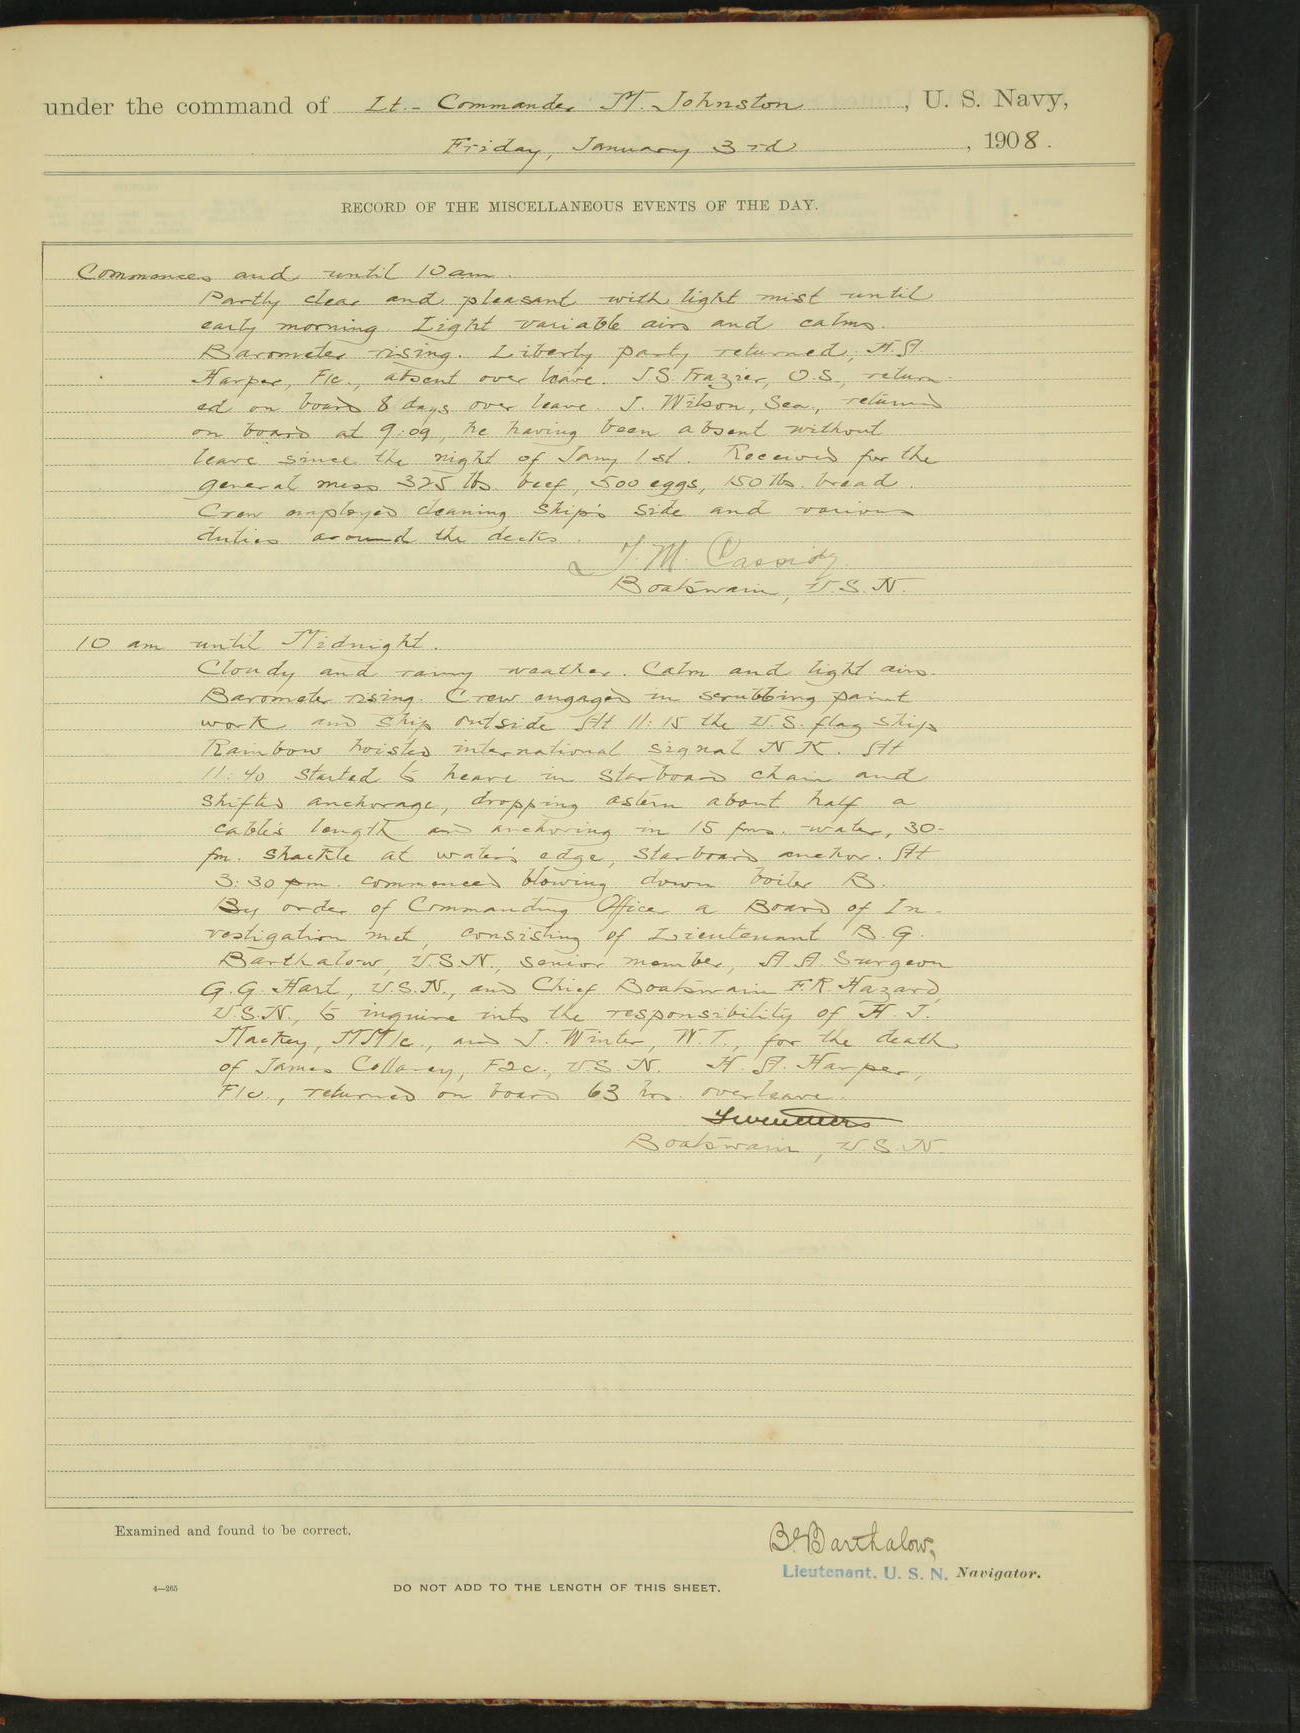 under the command of Lt.- Commander M. Johnston, U. S. Navy,
Friday, January 3rd, 1908.
RECORD OF THE MISCELLANEOUS EVENTS OF THE DAY.
Commences and until 10 am.
Partly clear and pleasant with light mist until
early morning. Light variable airs and calms.
Barometer rising. Liberty party returned; H.A.
Harper, F1c., absent over leave. J.S. Frazier, O.S., return-
ed on board 8 days over leave. J. Wilson, Sea., returned
on board at 9:09, he having been absent without
leave since the night of Jany 1st. Received for the
general mess 325 lbs. beef, 500 eggs, 150 lbs. bread.
Crew employed cleaning ship's side and various
duties around the decks.
J. M. Cassidy
Boatswain, U.S.N.
10 am until Midnight.
Cloudy and rainy weather. Calm and light airs.
Barometer rising. Crew engaged in scrubbing paint
work and ship outside At 11:15 the U.S. flag ship
Rainbow hoisted international signal N K. At
11:40 started to heave in starboard chain and
shifted anchorage, dropping astern about half a
cable's length and anchoring in 15 fms. water, 30-
fm. shackle at water's edge, starboard anchor. At
3:30 pm. commenced blowing down boiler B.
By order of Commanding Officer a Board of In-
vestigation met, consisting of Lieutenant B.G.
Barthalow, U.S.N., senior member, A A Surgeon
G.G. Hart, U.S.N., and Chief Boatswain F.R. Hazard,
U.S.N., to inquire into the responsibility of H. J.
Mackey, MM1c., and J. Winter, W.T., for the death
of James Collarey, F2c., U.S.N. H. A. Harper,
F1c., returned on board 63 hrs. overleave.
Boatswain, U.S.N.
Examined and found to be correct.
B.G. Barthalow,
Lieutenant. U. S. N. Navigator.
4—265
DO NOT ADD TO THE LENGTH OF THIS SHEET.